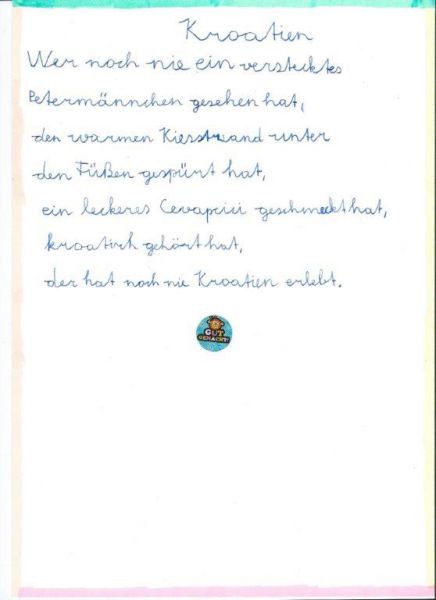 Kroatien
Wer noch nie ein verstecktes
Petermännchen gesehen hat,
den warmen Kiesstrand unter
den Füßen gespürt hat,
ein leckeres Cevapcici geschmeckt hat,
kroatisch gehört hat,
der hat noch nie Kroatien erlebt.
GUT
GEMACHT!